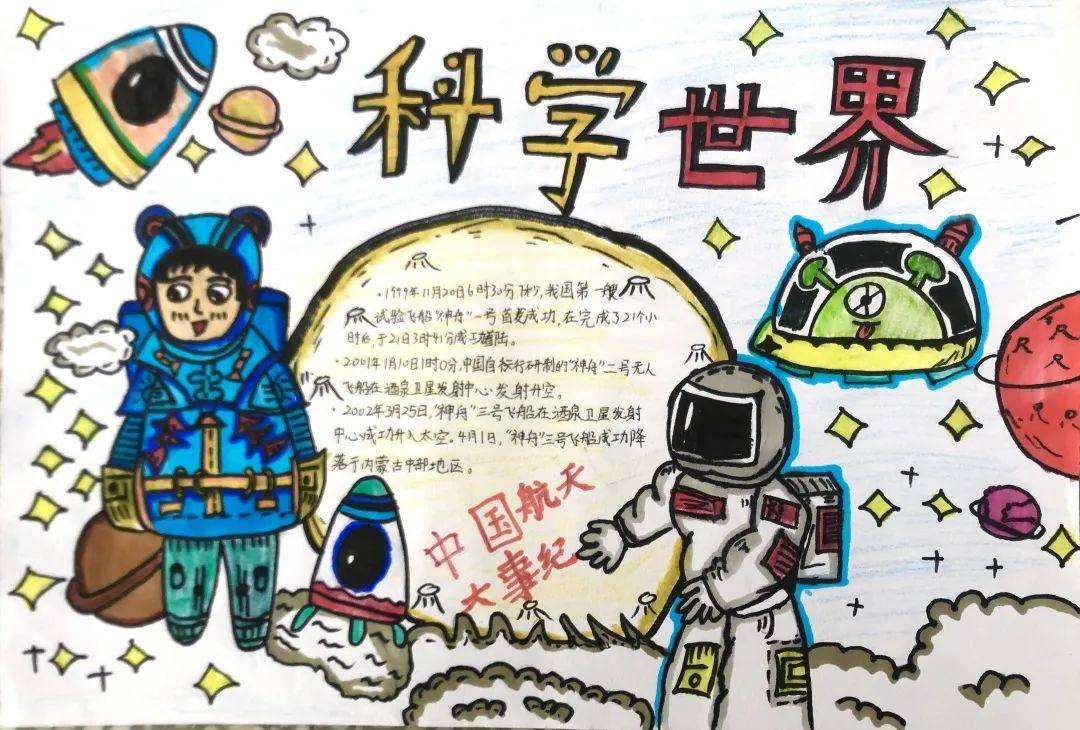 科学世界
·1999年11月20日6时30分7秒,我国第一艘
试验飞船“神舟”一号首发成功,在完成了21个小
时后,于21日3时41分成功着陆。
·2001年1月10日1时0分,中国自行研制的“神舟”二号无人
飞船在酒泉卫星发射中心发射升空。
·2002年3月25日,“神舟”三号飞船在酒泉卫星发射
中心成功升入太空。4月1日,“神舟”三号飞船成功降
落于内蒙古中部地区。
中国航天
大事纪